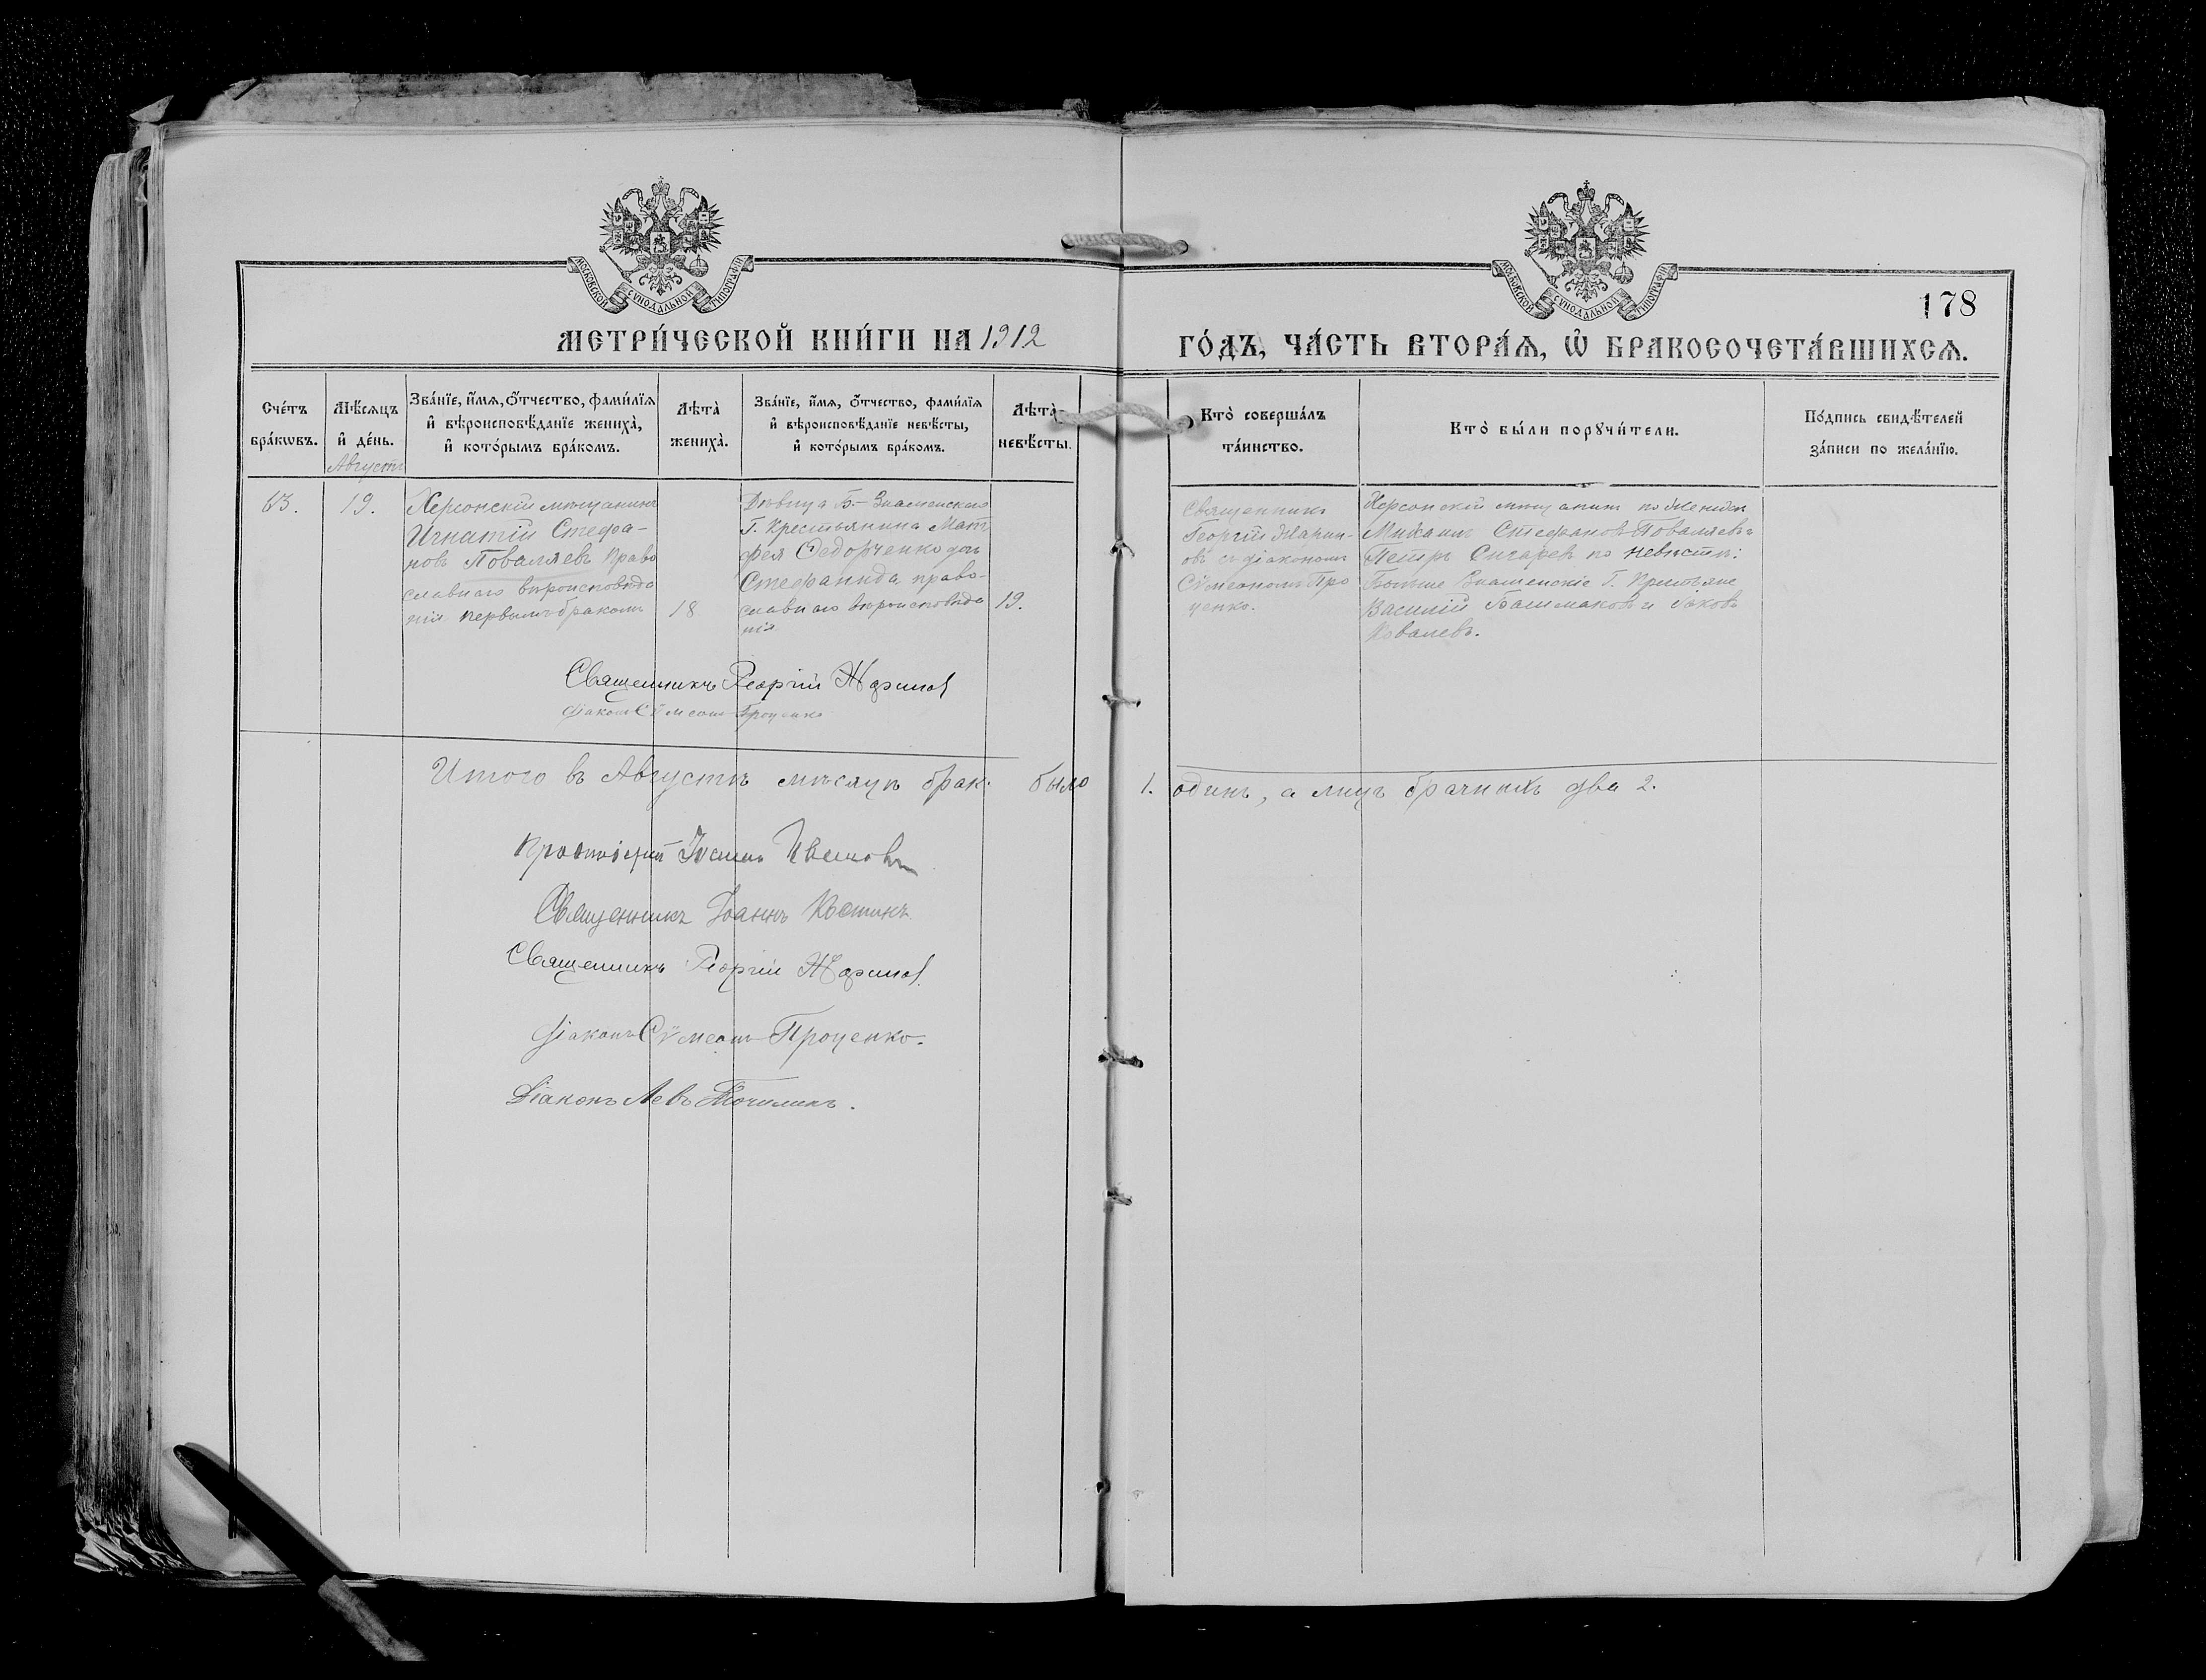 МОСКОВСКОЙ СѴНОДАЛЬНОЙ ТИПОГРАФІИ
МОСКОВСКОЙ СѴНОДАЛЬНОЙ ТИПОГРАФІИ
178
МЕТРИ́ЧЕСКОЙ КНИ́ГИ НА 1912
ГО́ДЪ, ЧА́СТЬ ВТОРА́Ѧ, Ѽ БРАКОСОЧЕТА́ВШИХСѦ.
Сче́тъ бра́кѡвъ.
Мѣ́сѧцъ и҆ де́нь.
Августъ
Зва́нїе, и҆́мѧ, ѻ҆́тчество, фами́лїѧ и҆ вѣроисповѣ́данїе жениха̀, и҆ кото́рымъ бра́комъ.
Лѣта̀ жениха̀.
Зва́нїе, и҆́мѧ, ѻ҆́тчество, фами́лїѧ и҆ вѣроисповѣ́данїе невѣ́сты, и҆ кото́рымъ бра́комъ.
Лѣта̀ невѣ́сты.
Кто̀ соверша́лъ та́инство.
Кто̀ бы́ли порꙋчи́тели.
По́дпись свидѣ́телей за́писи по жела́нїю.
19.
Херсонскій мѣщанинъ
Игнатій Стефа-
новъ Поваляевъ право
славнаго вѣроисповѣда
нія первымъ бракомъ
18
Дѣвица Б-Знаменскаго
Г. Крестьянина Мат
фея Федорченко дочь
Стефанида право-
славнаго вѣроисповѣда
нія
19.
Священникъ
Георгій Жарин-
овъ съ діакономъ
Сѵмеономъ Про
ценко.
Херсонскій мѣщанинъ по женихѣ
Михаилъ Стефановъ Поваляевъ и
Петръ Сигаревъ по невѣстѣ:
Больше Знаменскіе Г. Крестьяне
Василій Башмаковъ и Іаковъ
Ковалевъ.
Священникъ Георгій Жариновъ
Діаконъ Сѵмеонъ Проценко
Итого въ Августѣ мѣсяцѣ брак. было 1. одинъ, а лицъ брачныхъ два 2.
Протоіерей Іоаннъ Ивановъ
Священникъ Іоаннъ Костинъ
Священникъ Георгій Жариновъ
Діаконъ Сѵмеонъ Проценко.
Діаконъ Левъ Точилинъ.